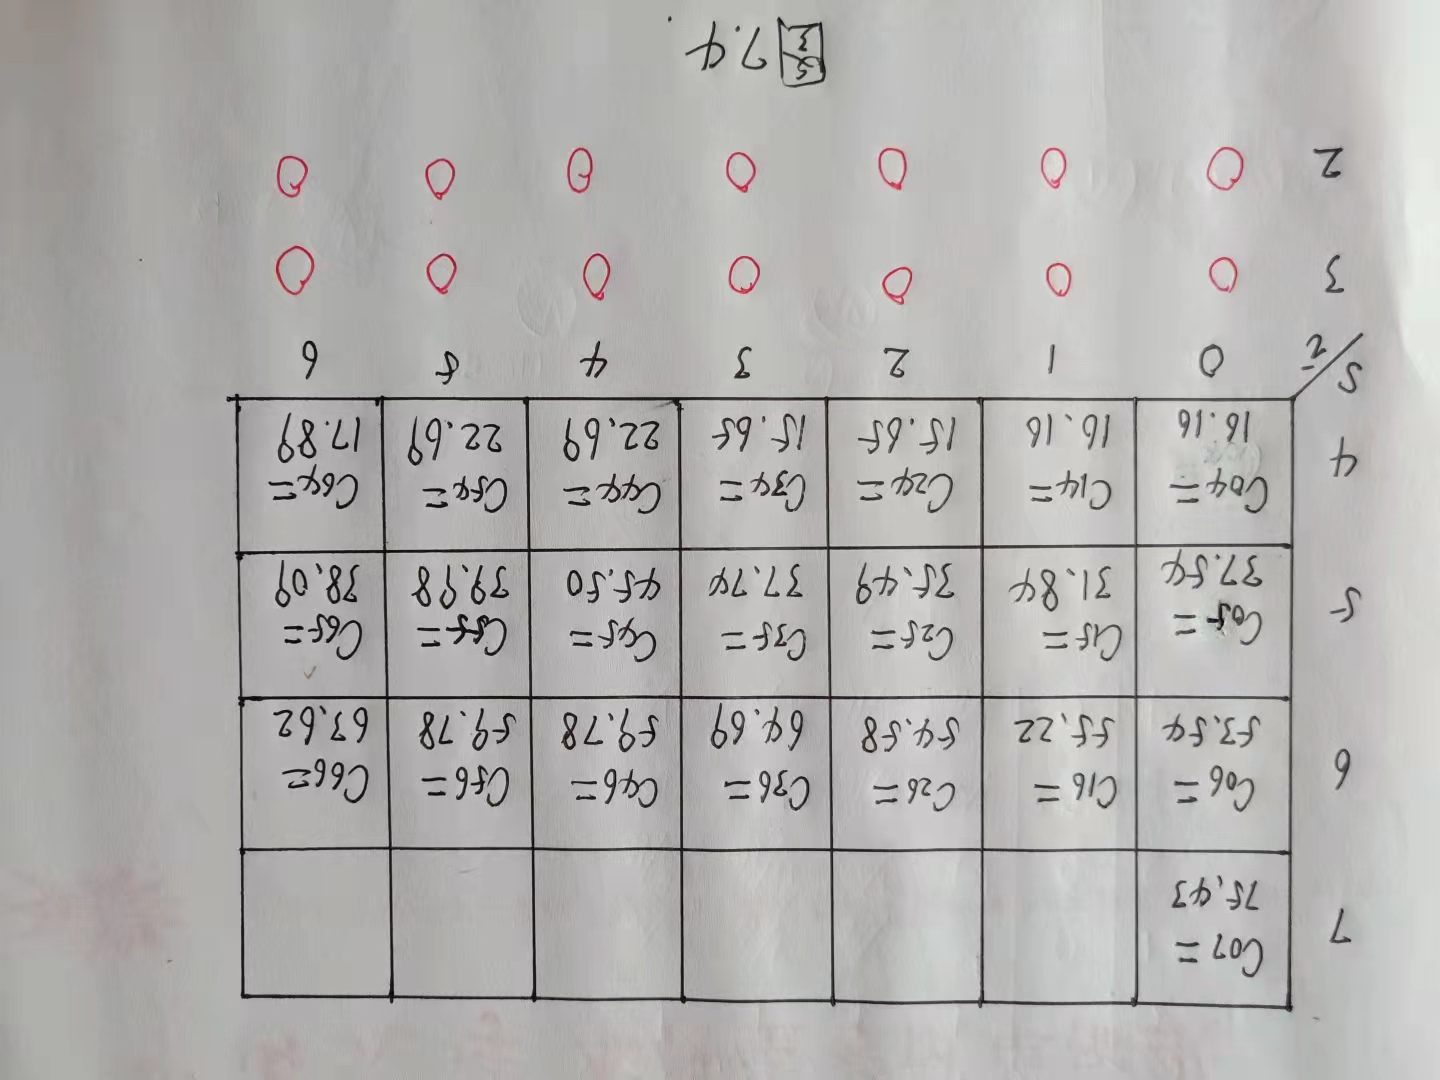 7 C07= 75.43
6 C06= 53.54 C16= 55.22 C26= 54.58 C36= 64.69 C46= 59.78 C56= 59.78 C66= 63.62
5 C05= 37.54 C15= 31.84 C25= 35.49 C35= 37.74 C45= 45.50 C55= 39.98 C65= 38.09
4 C04= 16.16 C14= 16.16 C24= 15.65 C34= 15.65 C44= 22.69 C54= 22.69 C64= 17.89
s/i 0 1 2 3 4 5 6
3 0 0 0 0 0 0 0
2 0 0 0 0 0 0 0
图7.4.